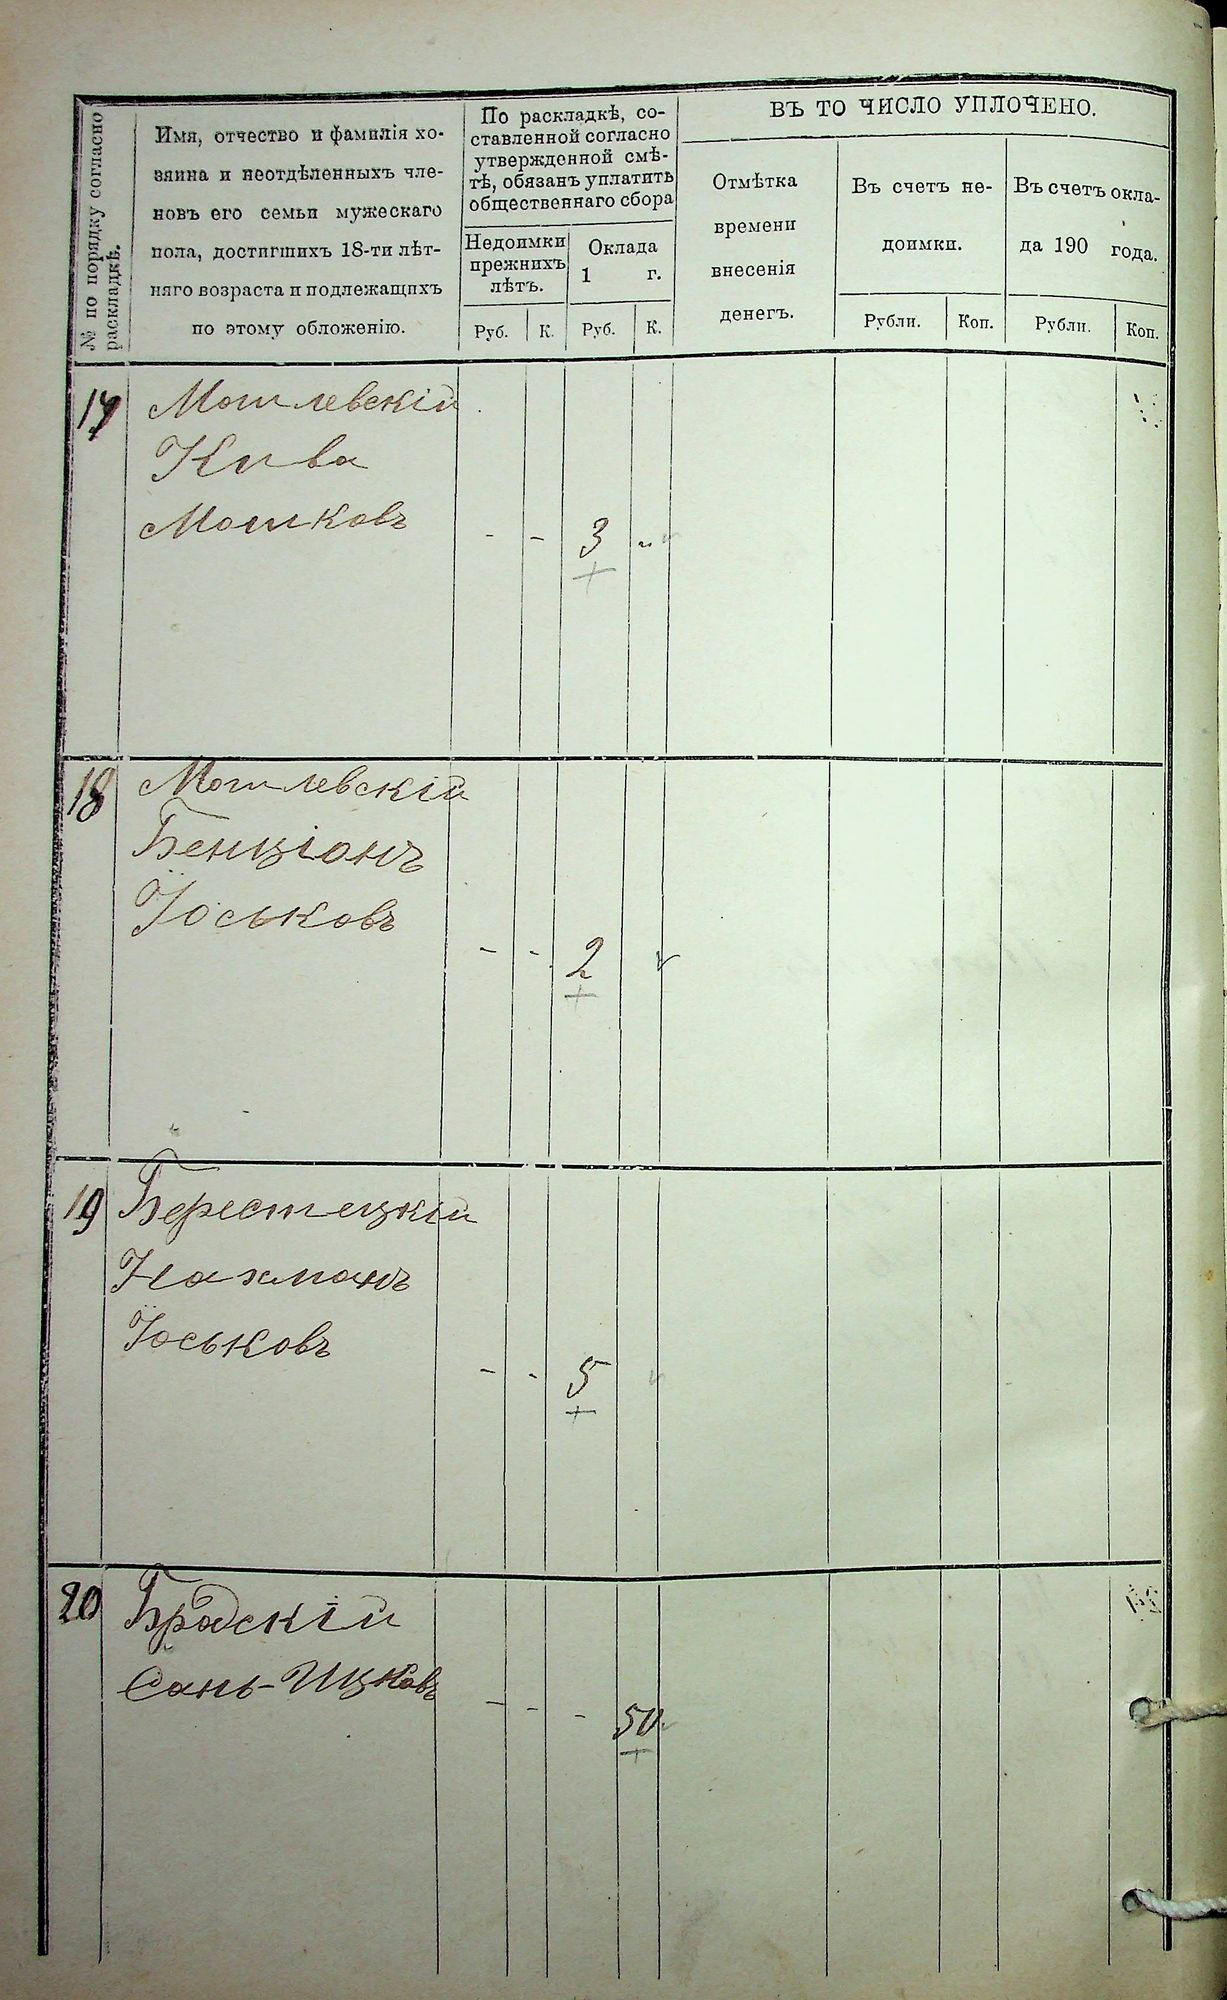 № по порядку согласно
раскладкѣ.
Имя, отчество и фамилія хо-
зяина и неотдѣленныхъ чле-
новъ его семьи мужескаго
пола, достигшихъ 18-ти лѣт-
няго возраста и подлежащихъ
по этому обложенію.
По раскладкѣ, со-
ставленной согласно
утвержденной смѣ-
тѣ, обязанъ уплатить
общественнаго сбора
Недоимки
прежнихъ
лѣтъ.
Оклада
1 г.
Руб. К. Руб. К.
ВЪ ТО ЧИСЛО УПЛОЧЕНО.
Отмѣтка
времени
внесенія
денегъ.
Въ счетъ не-
доимки.
Рубли. Коп.
Въ счетъ окла-
да 190 года.
Рубли. Коп.
17 Могилевскій
Кива
Мошковъ
- - 3 "
18 Могилевскій
Бенціонъ
Іоськовъ
- - 2
19 Берестецкій
Нахманъ
Іоськовъ
- - 5
20 Бродскій
Сань-Ицковъ
- - - 50